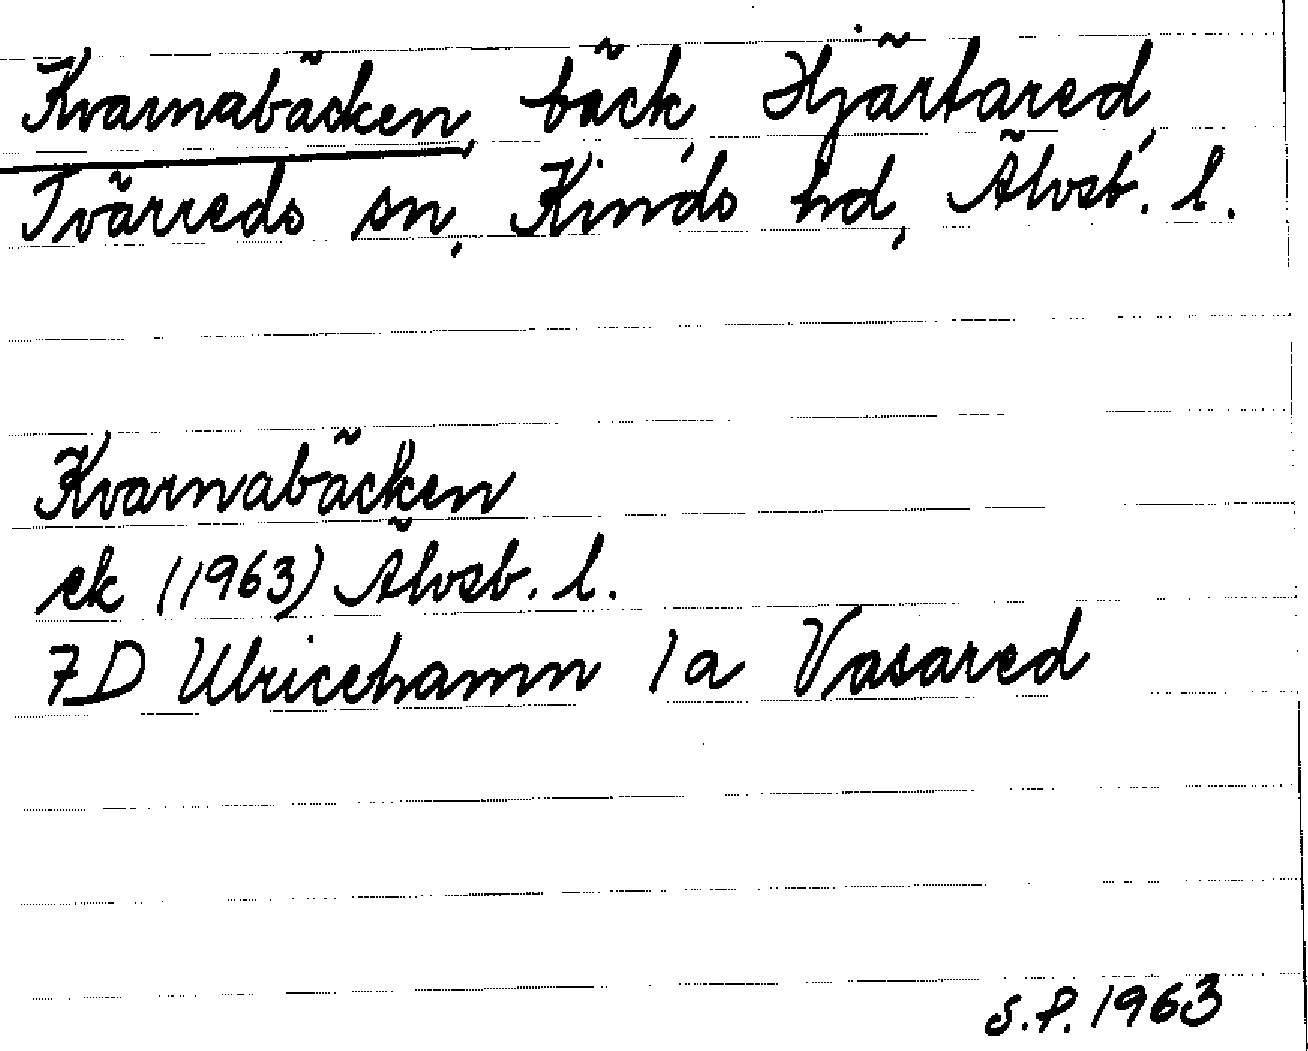 Kvarnabäcken, bäck, Hjärtared,
Tvärreds sn, Kinds hd, Älvsb. l.
Kvarnabäcken
ek (1963) Älvsb. l.
7D Ulricehamn 1a Vasared
S.P. 1963